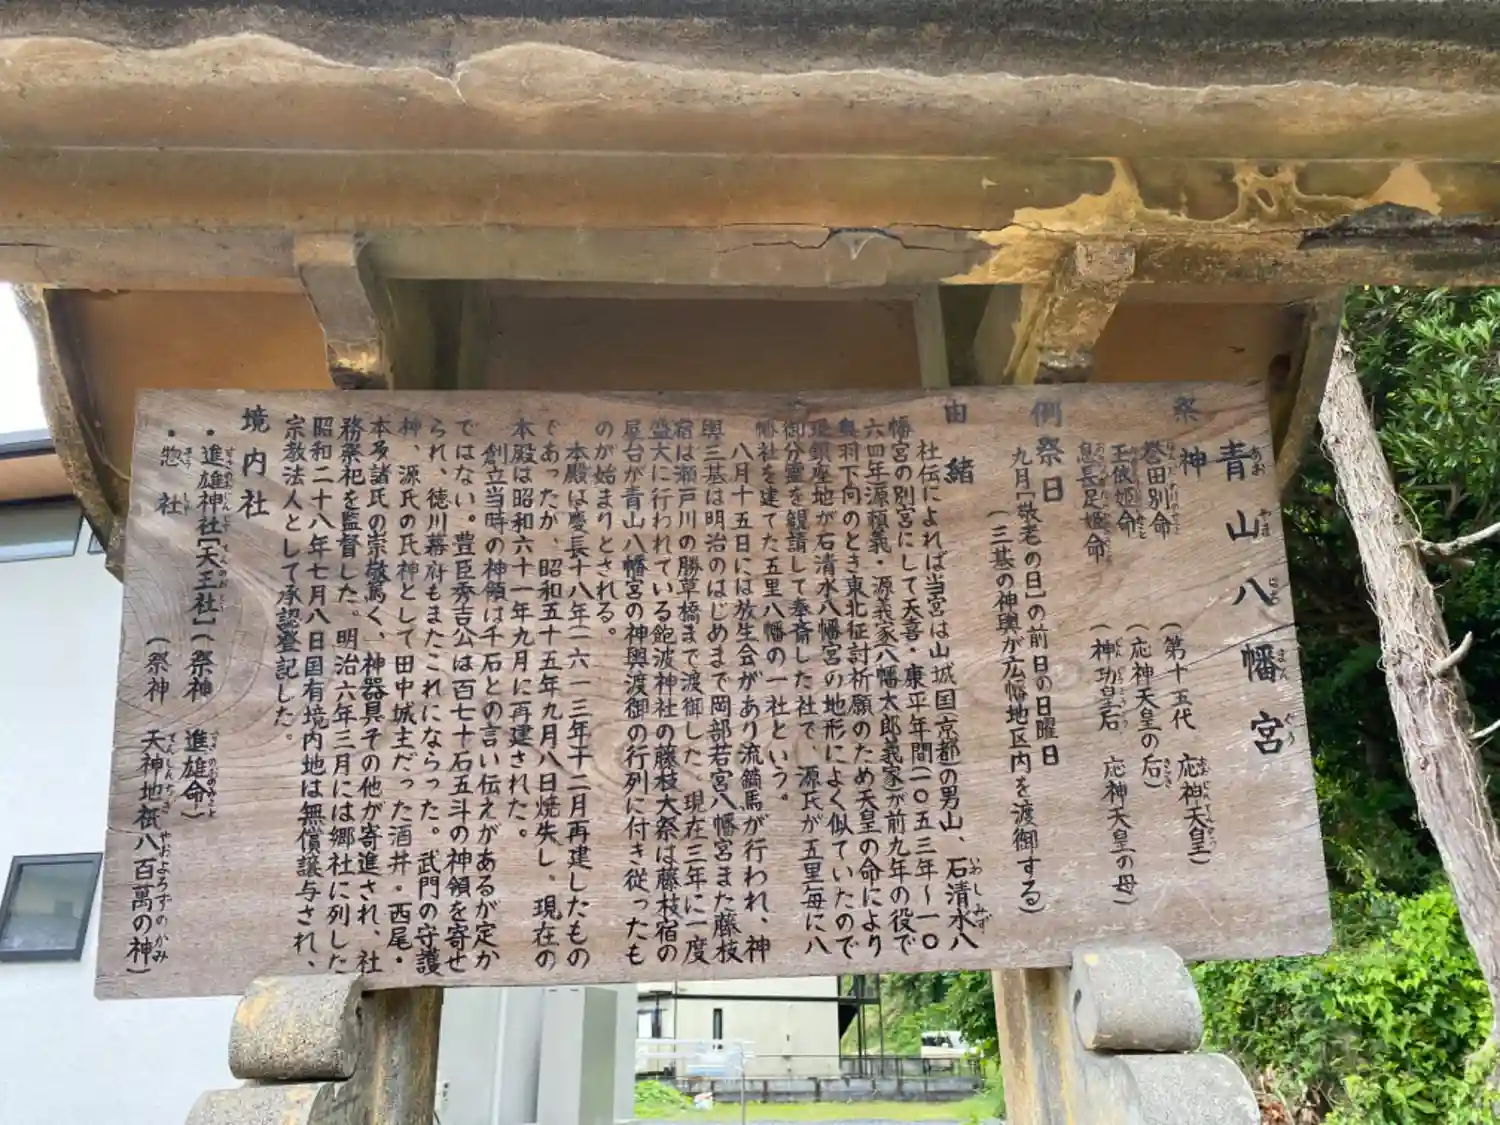 青山八幡宮
祭神
誉田別命 (第十五代 応神天皇)
玉依姫命 (応神天皇の后)
息長足姫命 (神功皇后 応神天皇の母)
例祭日
九月[敬老の日]の前日の日曜日
(三基の神輿が広幡地区内を渡御する)
由緒
社伝によれば当宮は山城国京都の男山、石清水八
幡宮の別宮にして天喜・康平年間(一〇五三年〜一〇
六四年源頼義・源義家(八幡太郎義家)が前九年の役で
奥羽下向のとき東北征討祈願のため天皇の命により
現鎮座地が石清水八幡宮の地形によく似ていたので
御分霊を観請して奉斎した社で、源氏が五里毎に八
幡社を建てた五里八幡の一社という。
八月十五日には放生会があり流鏑馬が行われ、神
輿三基は明治のはじめまで岡部若宮八幡宮また藤枝
宿は瀬戸川の勝草橋まで渡御した、現在三年に一度
盛大に行われている飽波神社の藤枝大祭は藤枝宿の
屋台が青山八幡宮の神輿渡御の行列に付き従ったも
のが始まりとされる。
本殿は慶長十八年(一六一三年)十二月再建したもの
であったが、昭和五十五年九月八日焼失し、現在の
本殿は昭和六十一年九月に再建された。
創立当時の神領は千石との言い伝えがあるが定か
ではない。豊臣秀吉公は百七十石五斗の神領を寄せ
られ、徳川幕府もまたこれにならった。武門の守護
神、源氏の氏神として田中城主だった酒井・西尾・
本多諸氏の崇敬篤く、神器具その他が寄進され、社
務祭祀を監督した。明治六年三月には郷社に列した
昭和二十八年七月八日国有境内地は無償譲与され、
宗教法人として承認登記した。
境内社
・進雄神社[天王社](祭神 進雄命)
・惣社 (祭神 天神地祇八百萬の神)